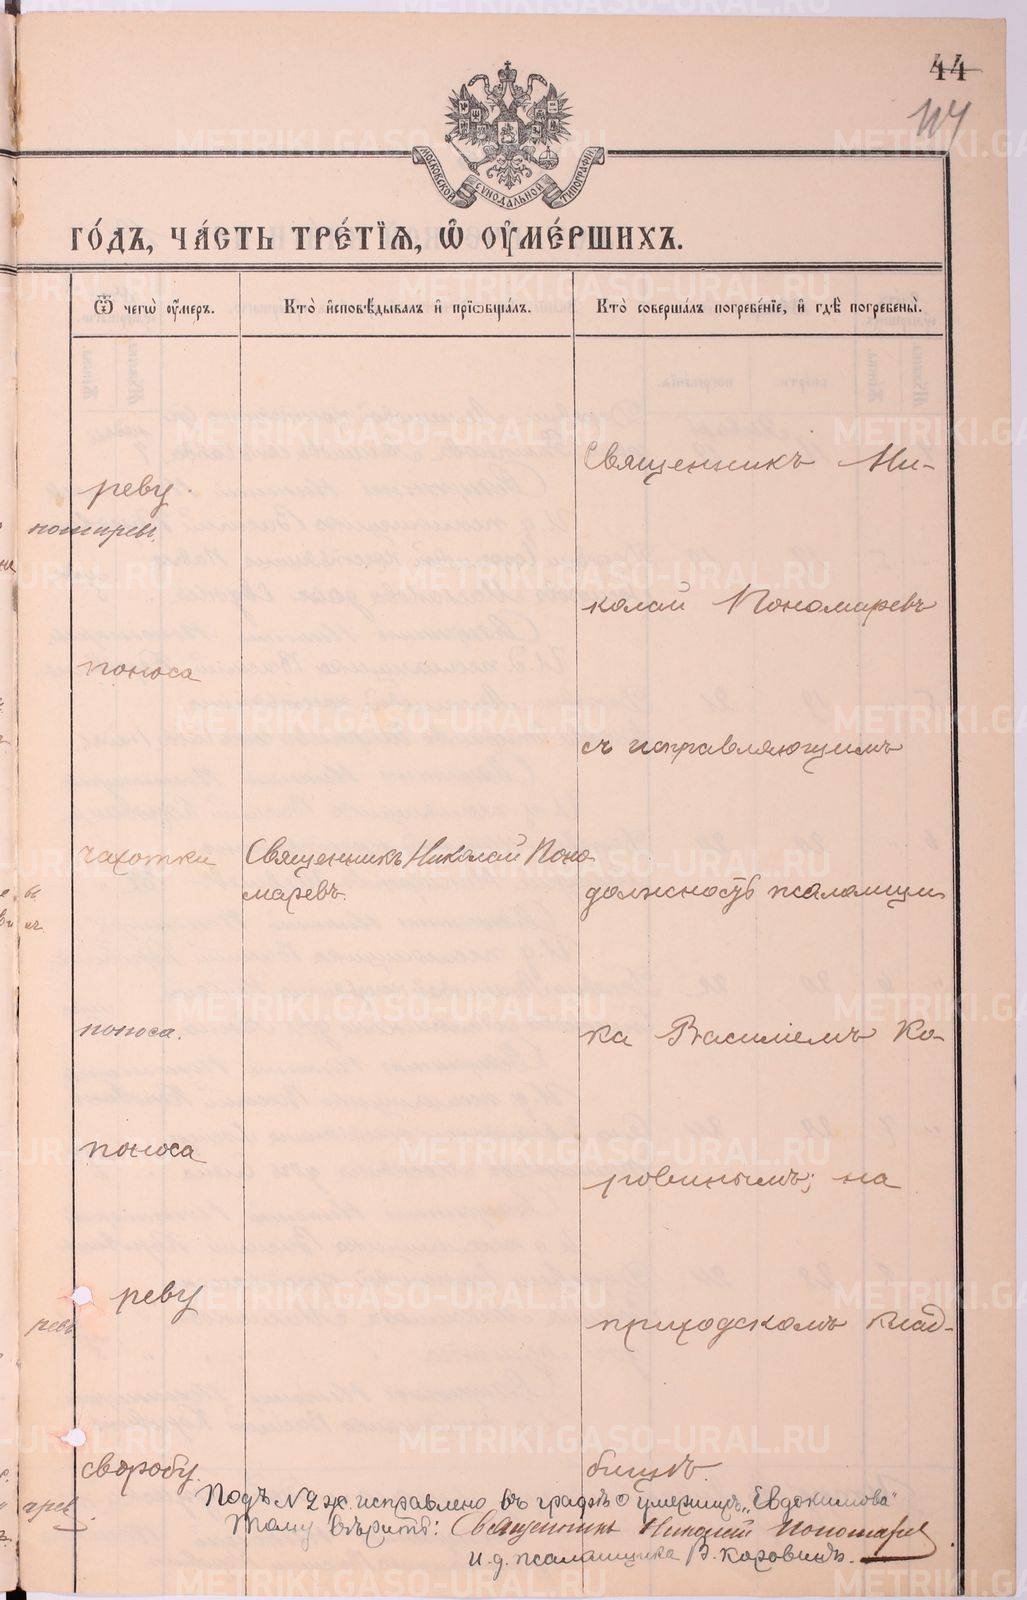 44
114
МОСКОВСКОЙ СѴНОДАЛЬНОЙ ТИПОГРАФІИ
ГО́ДЪ, ЧА́СТЬ ТРЕ́ТІѦ, Ѡ҆ ОУ҆МЕ́РШИХЪ.
Ѿ чегѡ̀ оу҆́меръ.
Кто̀ и҆сповѣ́дывалъ и҆ прїѡбща́лъ.
Кто̀ соверша́лъ погребе́нїе, и҆ гдѣ̀ погребены̀.
Священникъ Ни-
реву.
колай Пономаревъ
поноса
съ исправляющимъ
чахотки
Священникъ Николай Поно
маревъ.
должность псаломщи
поноса.
ка Василіемъ Ко-
поноса
ровинымъ; на
реву
приходскомъ клад-
своробу.
бищѣ.
Подъ № 2 ж. исправлено въ графѣ о умершихъ „Евдокимова"
Тому вѣритъ: Священникъ Николай Пономаревъ.
И. д. псаломщика В. Коровинъ.
METRIKI.GASO-URAL.RU